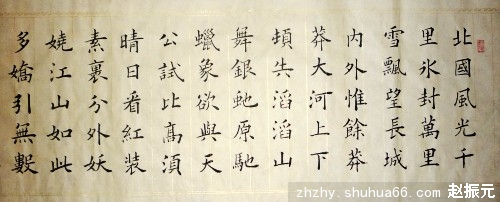 北國風光千
里氷封萬里
雪飄望長城
内外惟餘莽
莽大河上下
頓失滔滔山
舞銀虵原馳
蠟象欲與天
公試比髙須
晴日看紅装
素裹分外妖
嬈江山如此
多嬌引無數
zhzhy.shuhua66.com 赵振元